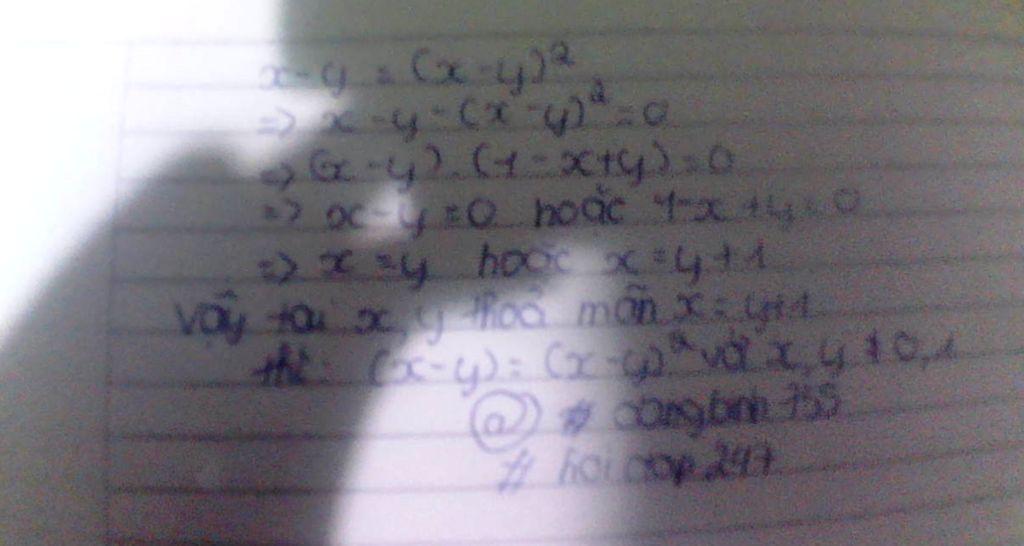 x-y = (x-y)²
=> x-y-(x-y)²=0
=> (x-y).(1-x+y)=0
=> x-y=0 hoặc 1-x+y=0
=> x=y hoặc x=y+1
Vậy tại x,y thoả mãn x=y+1
thì: (x-y)=(x-y)² với x,y ≠ 0,1
@ #
# hoidap247